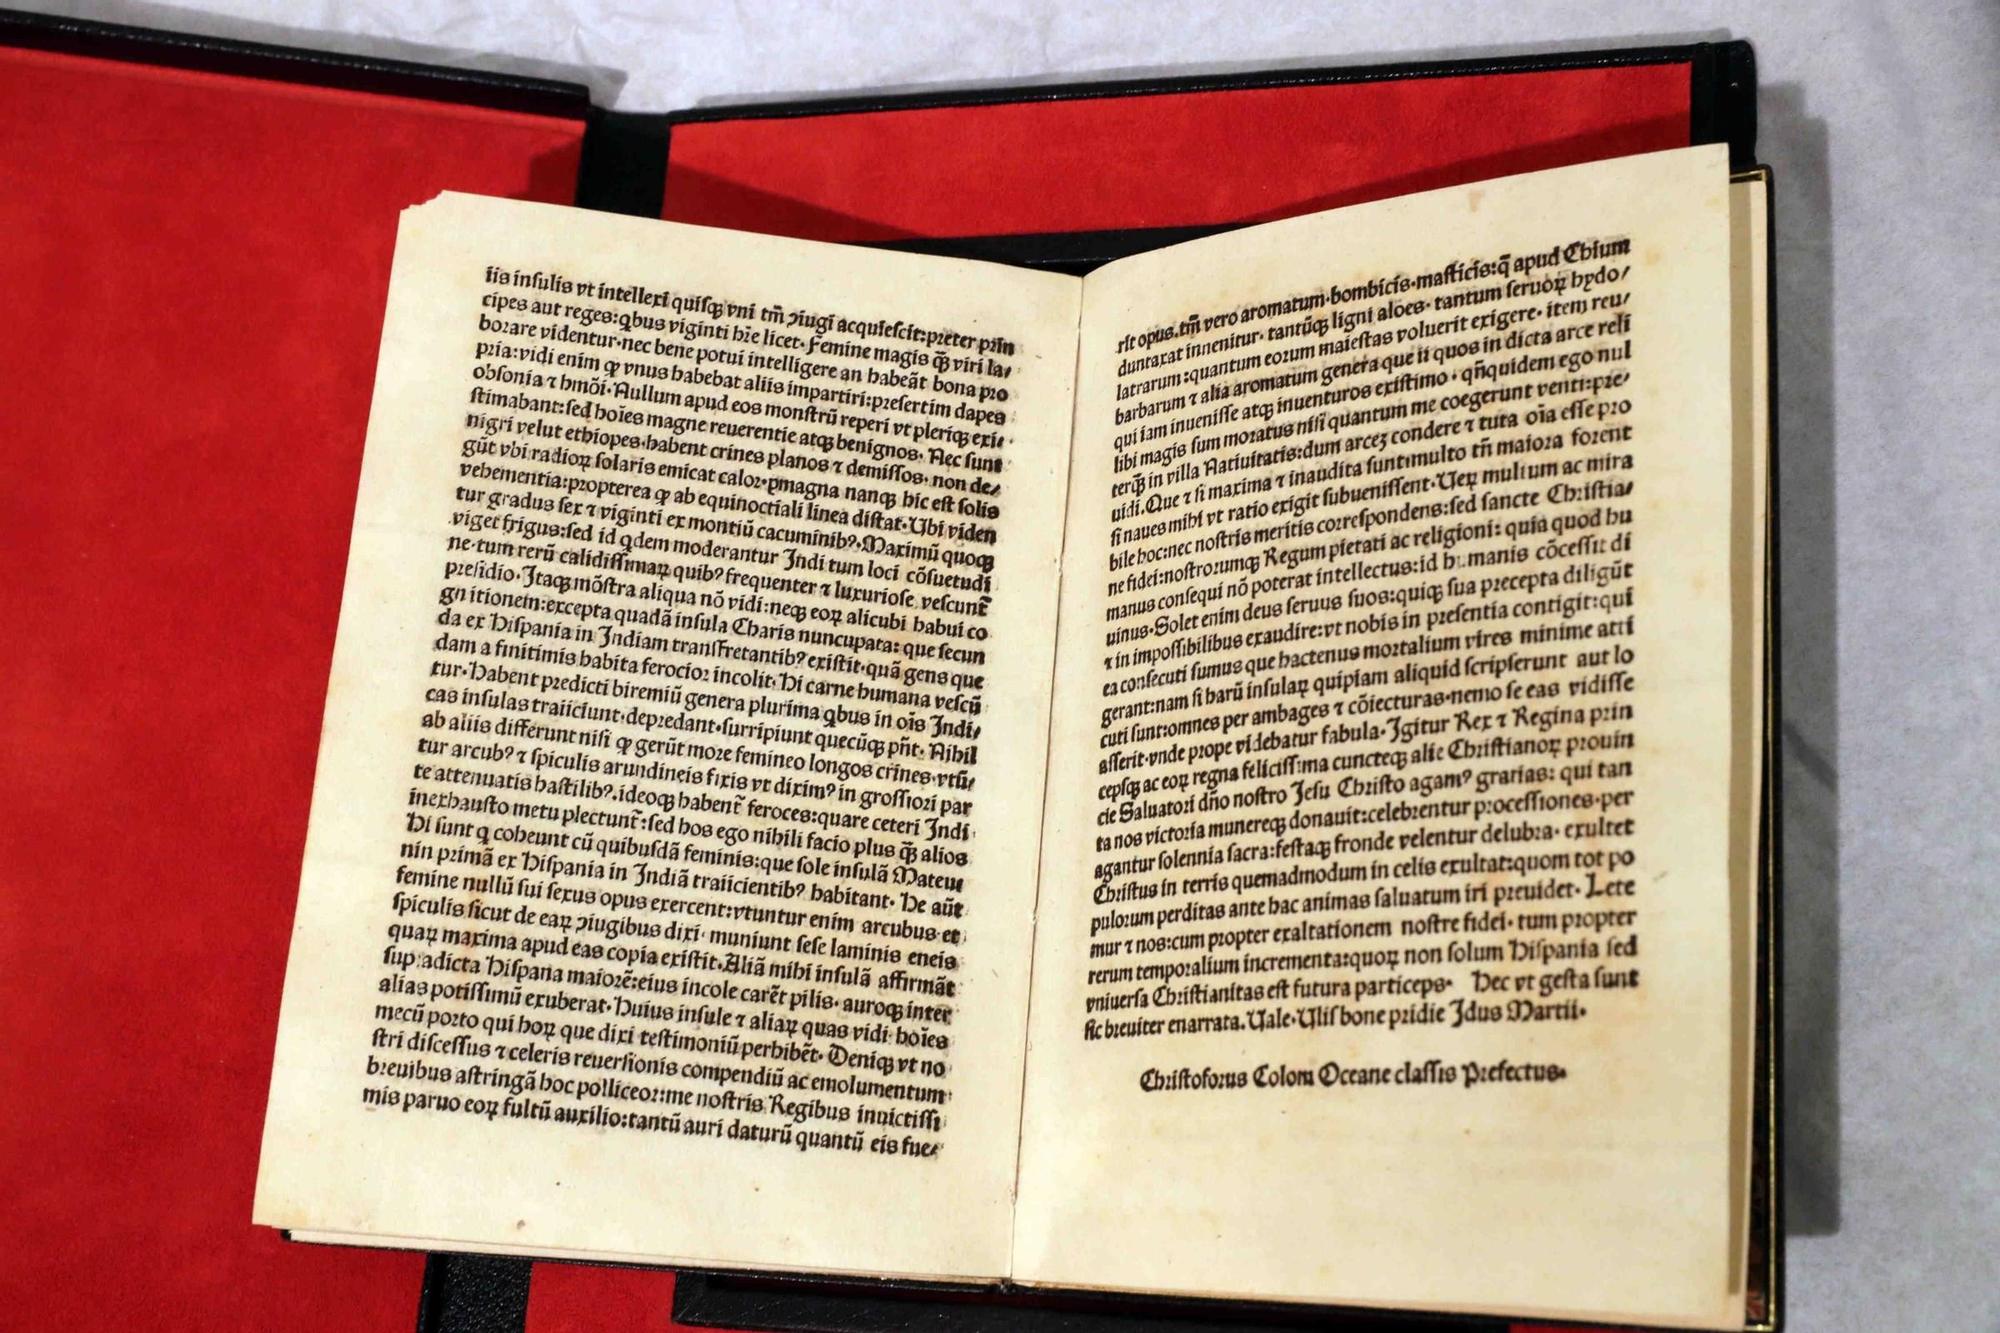 iis insulis vt intellexi quisqꝫ vni tm̄ ꝯiugi acquiescit: preter prin
cipes aut reges: qbus viginti hr̄e licet. Femine magis qꝫ̄ viri la/
borare videntur. nec bene potui intelligere an habeāt bona pro
pria: vidi enim ꝙ vnus habebat aliis impartiri: presertim dapes
obsonia ⁊ hmōi. Nullum apud eos monstrū reperi vt pleriqꝫ exi/
stimabant: sed hoīes magne reuerentie atqꝫ benignos. Nec sunt
nigri velut ethiopes. habent crines planos ⁊ demissos. non de/
gūt vbi radioꝝ solaris emicat calor. pmagna nanqꝫ hic est solis
vehementia: propterea ꝙ ab equinoctiali linea distat. Ubi viden
tur gradus sex ⁊ viginti ex montiū cacuminibꝰ. Maximū quoqꝫ
viget frigus: sed id qdem moderantur Indi tum loci cōsuetudi
ne. tum rerū calidissimaꝝ quibꝰ frequenter ⁊ luxuriose vescunt̄
presidio. Itaqꝫ mōstra aliqua nō vidi: neqꝫ eoꝝ alicubi habui co
gnitionem: excepta quadā insula Charis nuncupata: que secun
da ex Hispania in Indiam transfretantibꝰ existit. quā gens que
dam a finitimis habita ferocior incolit. Hi carne humana vescū
tur. Habent predicti biremiū genera plurima qbus in oīs Indi/
cas insulas traiiciunt. depredant. surripiunt quecūqꝫ pn̄t. Nihil
ab aliis differunt nisi ꝙ gerūt more femineo longos crines. vtū/
tur arcubꝰ ⁊ spiculis arundineis fixis vt diximꝰ in grossiori par
te attenuatis hastilibꝰ. ideoqꝫ habent̄ feroces: quare ceteri Indi
inexhausto metu plectunt̄: sed hos ego nihili facio plus qꝫ̄ alios
Hi sunt q coheunt cū quibusdā feminis: que sole insulā Mateu
nin primā ex Hispania in Indiā traiicientibꝰ habitant. He aūt
femine nullū sui sexus opus exercent: vtuntur enim arcubus et
spiculis sicut de eaꝝ ꝯiugibus dixi. muniunt sese laminis eneis
quaꝝ maxima apud eas copia existit. Aliā mihi insulā affirmāt
supradicta Hispana maiorē: eius incole carēt pilis. auroqꝫ inter
alias potissimū exuberat. Huius insule ⁊ aliaꝝ quas vidi hoīes
mecū porto qui hoꝝ que dixi testimoniū perhibēt. Deniqꝫ vt no
stri discessus ⁊ celeris reuersionis compendiū ac emolumentum
breuibus astringā hoc polliceor: me nostris Regibus inuictissi
mis paruo eoꝝ fultū auxilio: tantū auri daturū quantū eis fue/
rit opus. tm̄ vero aromatum. bombicis. masticis: q̄ apud Chium
duntaxat innenitur. tantūqꝫ ligni aloes. tantum seruoꝝ hydo/
latrarum: quantum eorum maiestas voluerit exigere. item reu/
barbarum ⁊ alia aromatum genera que ii quos in dicta arce reli
qui iam inuenisse atqꝫ inuenturos existimo. qn̄quidem ego nul
libi magis sum moratus nisi quantum me coegerunt venti: pre/
terqꝫ̄ in villa Natiuitatis: dum arceꝫ condere ⁊ tuta oīa esse pro
uidi. Que ⁊ si maxima ⁊ inaudita sunt. multo tn̄ maiora forent
si naues mihi vt ratio exigit subuenissent. Ueꝝ multum ac mira
bile hoc: nec nostris meritis correspondens: sed sancte Christia/
ne fidei: nostrorumqꝫ Regum pietati ac religioni: quia quod hu
manus consequi nō poterat intellectus: id humanis cōcessit di
uinus. Solet enim deus seruus suos: quiqꝫ sua precepta diligūt
⁊ in impossibilibus exaudire: vt nobis in presentia contigit: qui
ea consecuti sumus que hactenus mortalium vires minime atti
gerant: nam si harū insulaꝝ quipiam aliquid scripserunt aut lo
cuti sunt: omnes per ambages ⁊ cōiecturas. nemo se eas vidisse
asserit. vnde prope videbatur fabula. Igitur Rex ⁊ Regina prin
cepsqꝫ ac eoꝝ regna felicissima cuncteqꝫ alie Christianoꝝ prouin
cie Saluatori dn̄o nostro Jesu Christo agamꝰ gratias: qui tan
ta nos victoria munereqꝫ donauit: celebrentur processiones. per
agantur solennia sacra: festaqꝫ fronde velentur delubra. exultet
Christus in terris quemadmodum in celis exultat: quom tot po
pulorum perditas ante hac animas saluatum iri preuidet. Lete
mur ⁊ nos: cum propter exaltationem nostre fidei. tum propter
rerum temporalium incrementa: quoꝝ non solum Hispania sed
vniuersa Christianitas est futura particeps. Hec vt gesta sunt
sic breuiter enarrata. Uale. Ulisbone pridie Idus Martii.
Christoforus Colom Oceane classis Prefectus.